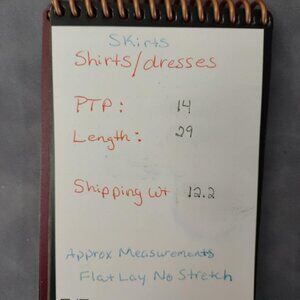 Skirts
Shirts/dresses
PTP: 14
Length: 29
Shipping wt 12.2
Approx Measurements
Flat Lay No Stretch